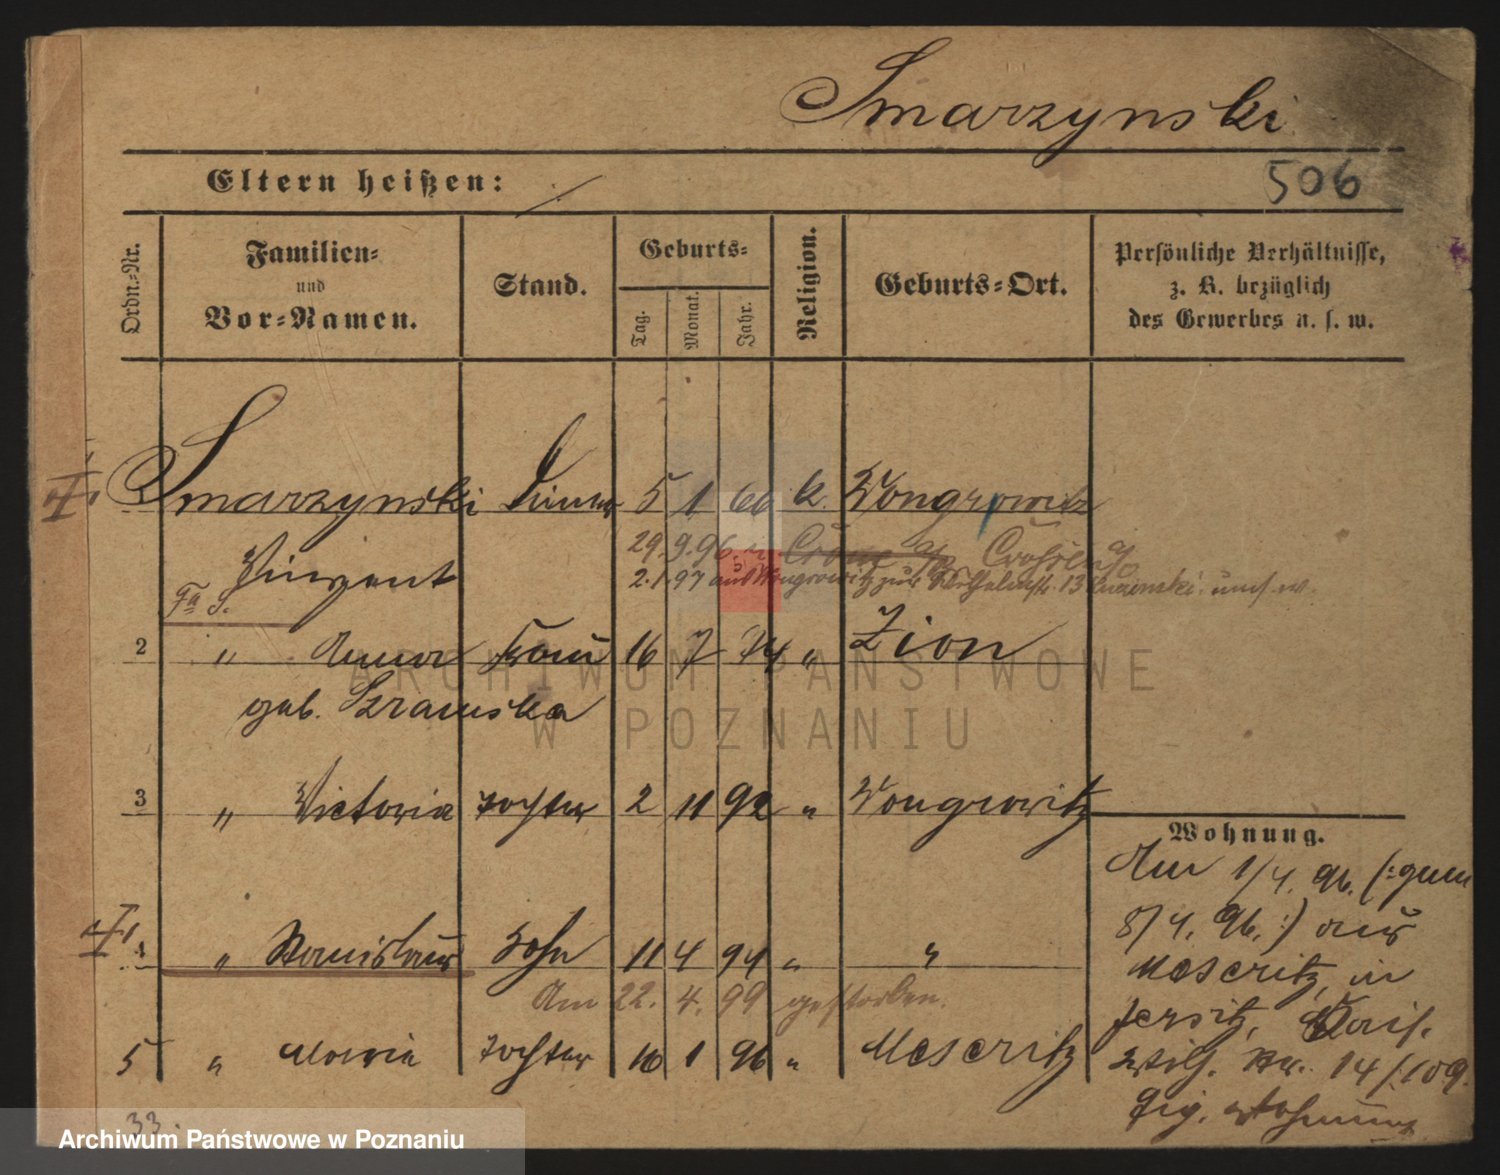 Smarzynski
506
Eltern heißen:
Ordn.-Nr.
Familien- und Vor-Namen.
Stand.
Geburts-
Tag.
Monat.
Jahr.
Religion.
Geburts-Ort.
Persönliche Verhältnisse, z. B. bezüglich des Gewerbes u. s. w.
Smarzynski 5 1 66 k. Wongrowitz
29.9.96 in
Vinzent
2.1.97 aus Wongrowitz zur 13
2 " Anna Frau 16 7 74 " Zion
geb. Szramska
3 " Victoria Tochter 2 11 92 " Wongrowitz
Wohnung.
Am 1/4. 96. (: gem
8/4. 96. :) aus
4 " Stanislaus Sohn 11 4 94 " "
Meseritz, in
Am 22. 4. 99 gestorben.
Jersitz, Kais.
5 " Maria Tochter 10 1 96 " Meseritz
Wilh. Str. 14 /:109
33.
Archiwum Państwowe w Poznaniu
ARCHIWUM PAŃSTWOWE
W POZNANIU